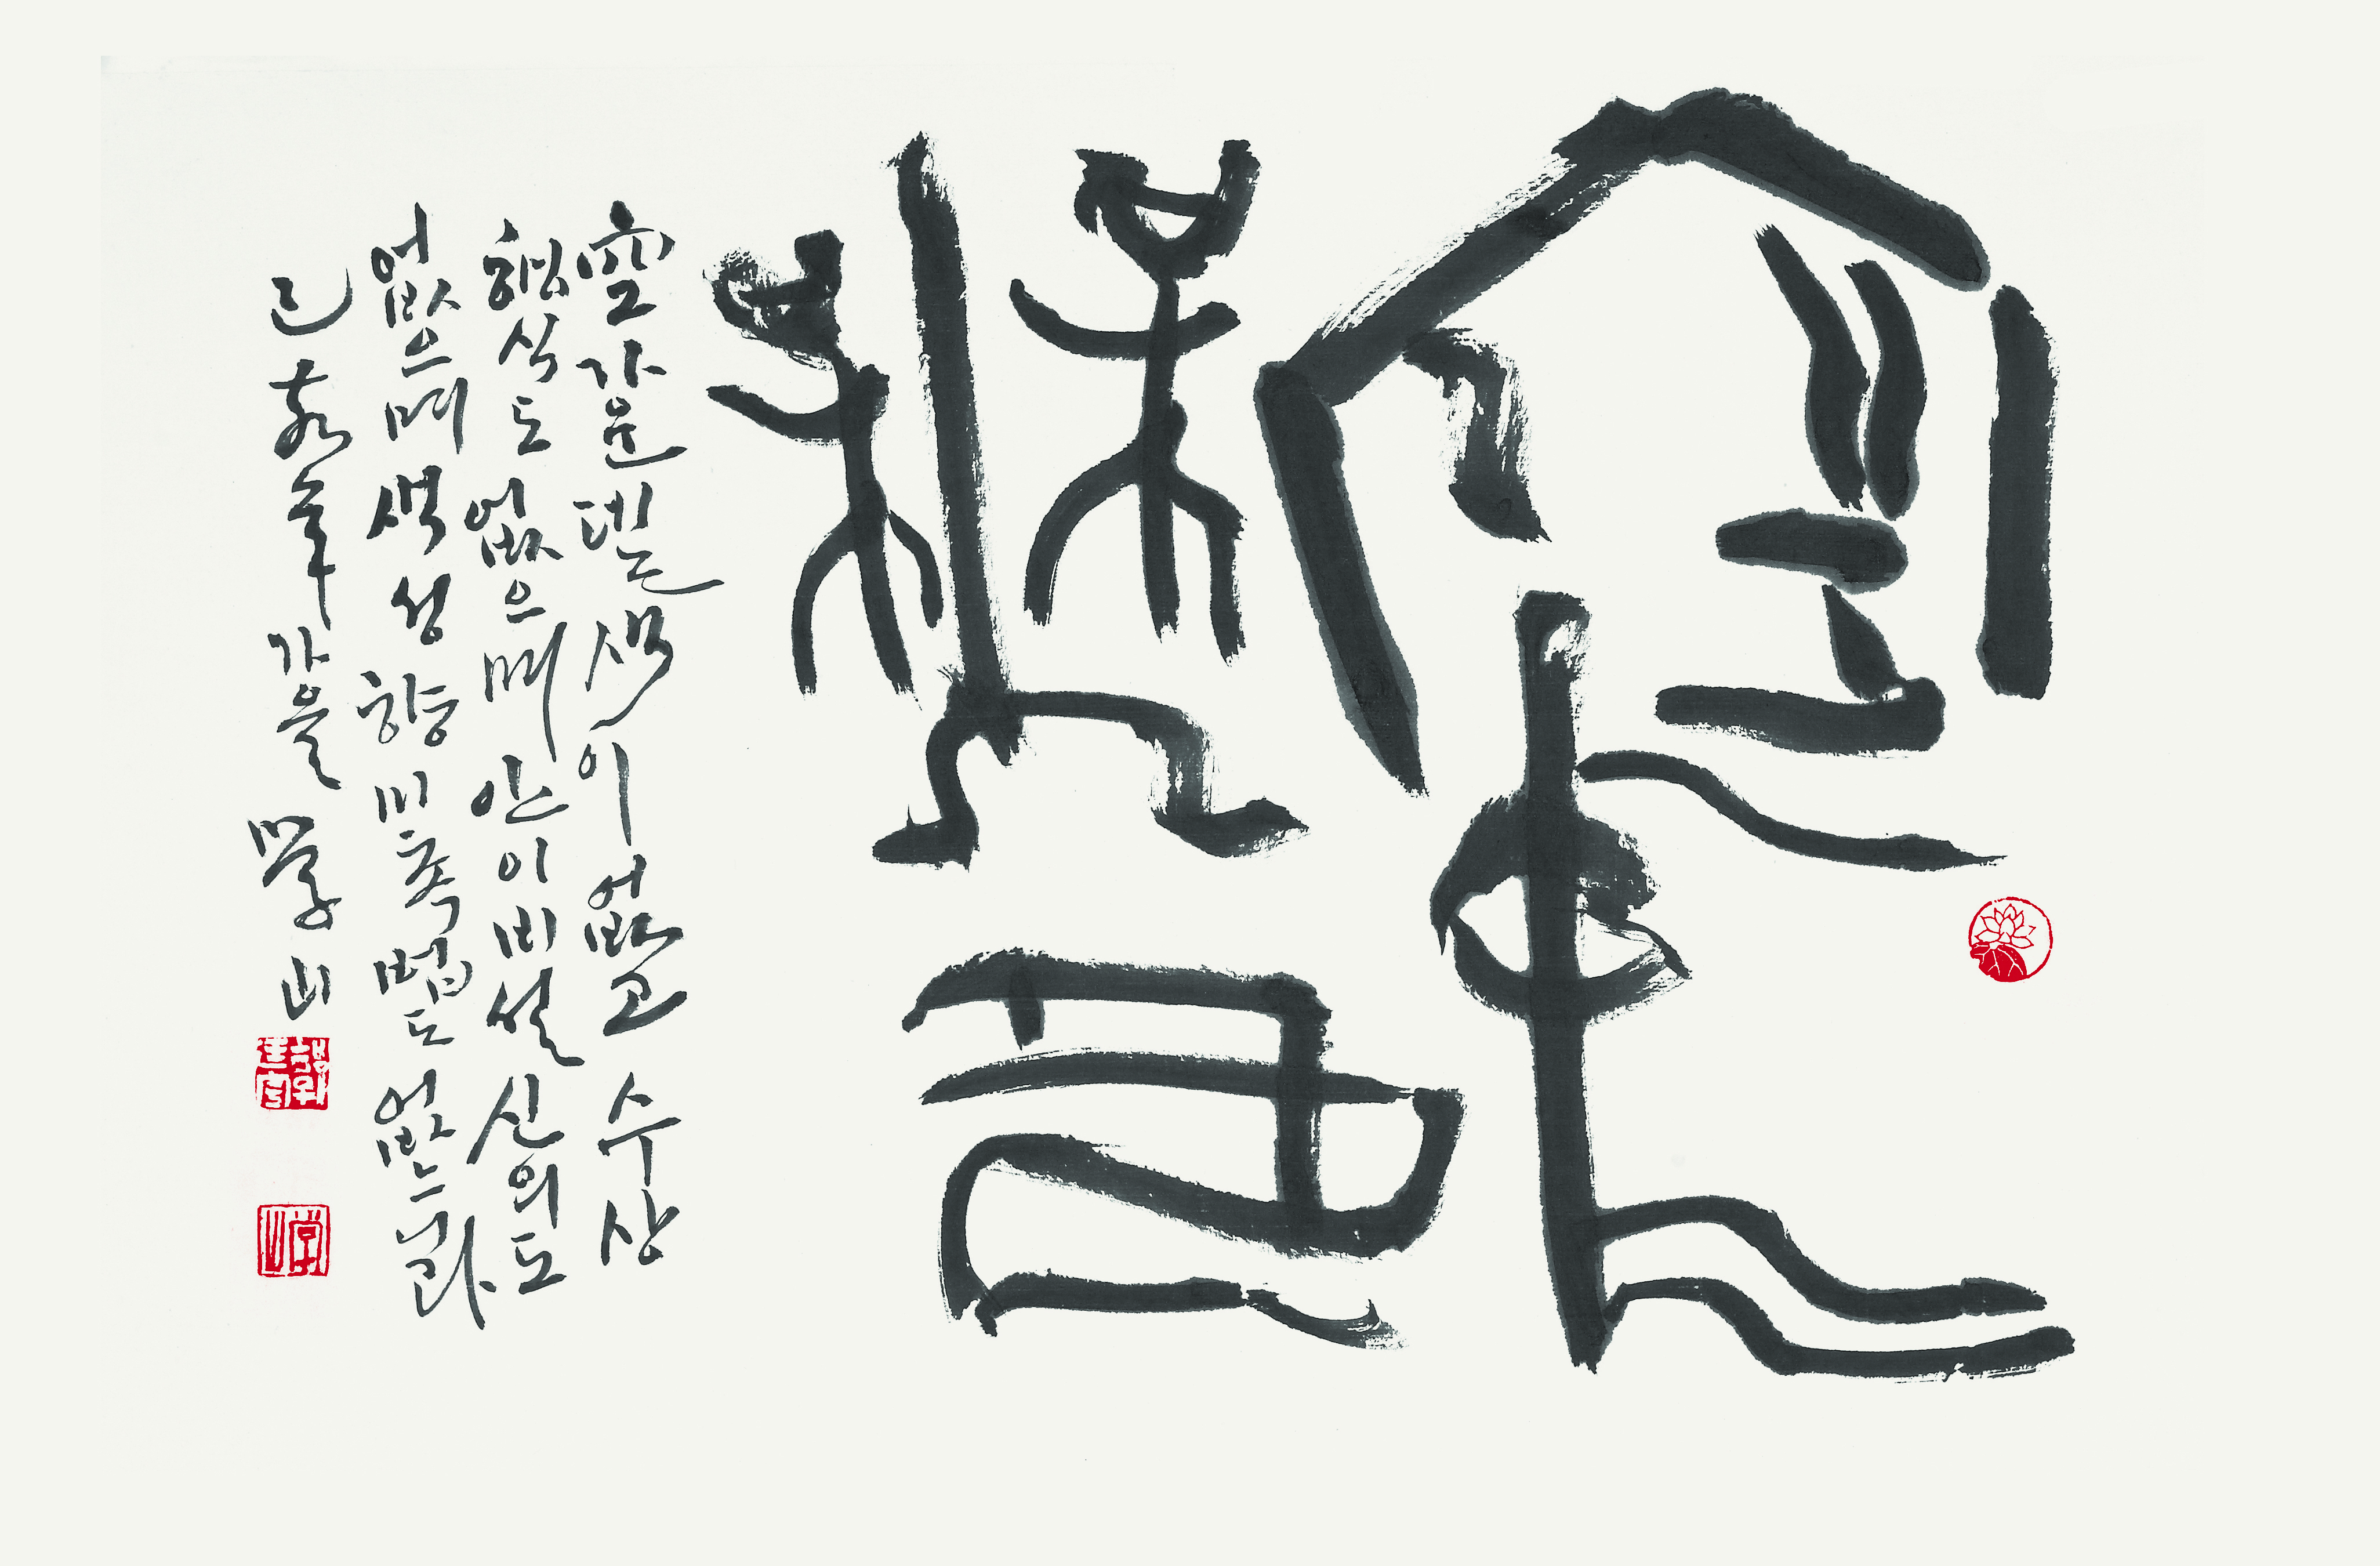 空中
無色
空 가운덴 색이 없고 수상
행식도 없으며 안이비설신의도
없으며 색성향미촉법도 없느니라
己亥年 가을 學山